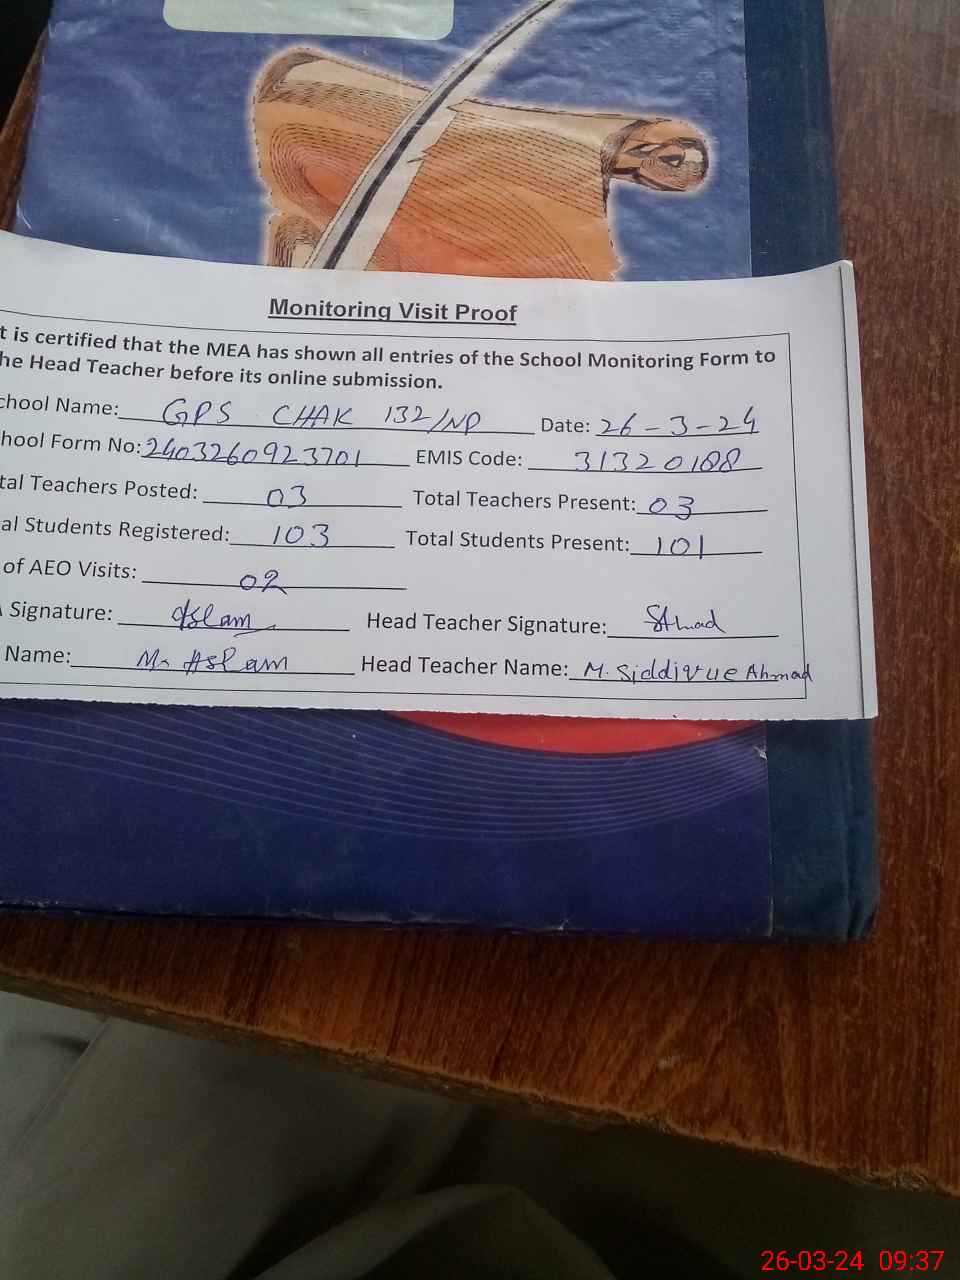 Monitoring Visit Proof
t is certified that the MEA has shown all entries of the School Monitoring Form to
he Head Teacher before its online submission.
chool Name: GPS CHAK 132/NP Date: 26-3-24
hool Form No: 2403260923701 EMIS Code: 31320188
tal Teachers Posted: 03 Total Teachers Present: 03
al Students Registered: 103 Total Students Present: 101
of AEO Visits: 02
Signature: Aslam Head Teacher Signature:
Name: M. Aslam Head Teacher Name: M. Siddivue Ahmad
26-03-24 09:37